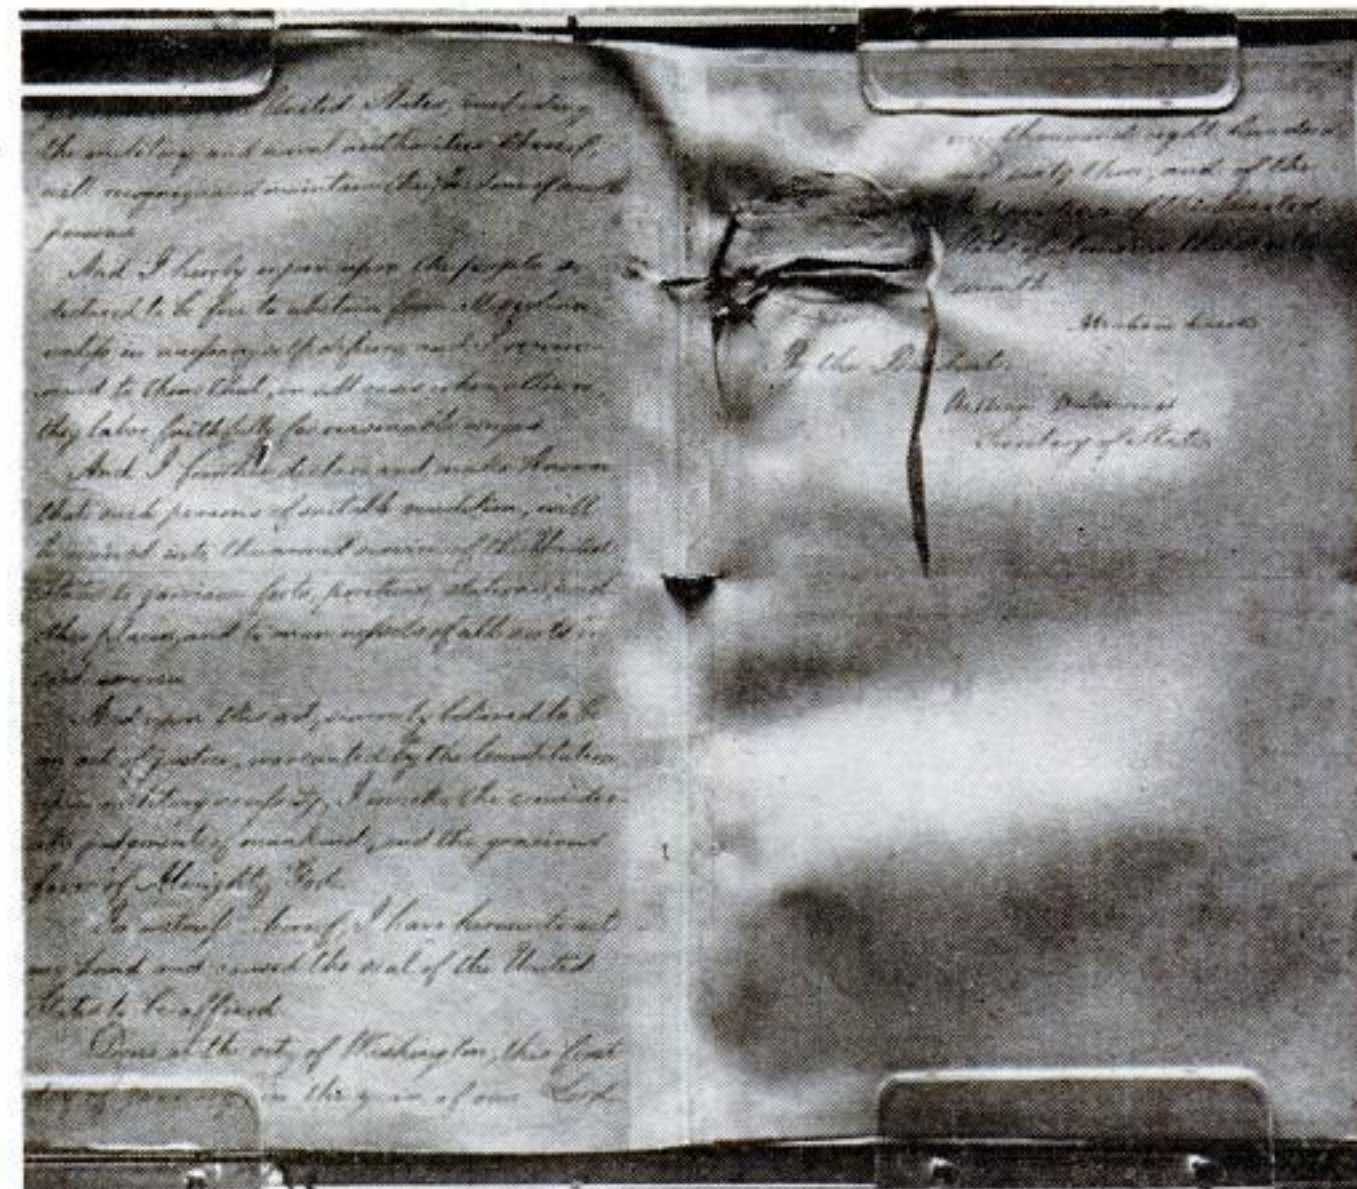 United States, including
the military and naval authorities thereof,
will recognize and maintain the freedom of said
persons.
And I hereby enjoin upon the people so
declared to be free to abstain from all violence,
unless in necessary self-defence; and I recom-
mend to them that, in all cases when allowed,
they labor faithfully for reasonable wages.
And I further declare and make known
that such persons of suitable condition, will
be received into the armed service of the United
States to garrison forts, positions, stations, and
other places, and to man vessels of all sorts in
said service.
And upon this act, sincerely believed to be
an act of justice, warranted by the Constitution,
upon military necessity, I invoke the consider-
ate judgment of mankind, and the gracious
favor of Almighty God.
In witness whereof, I have hereunto set
my hand and caused the seal of the United
States to be affixed.
Done at the city of Washington, this first
day of in the year of our Lord
one thousand eight hundred
and sixty three, and of the
Independence of the United
States of America the
seventh.
Abraham Lincoln
By the President:
William H. Seward
Secretary of State